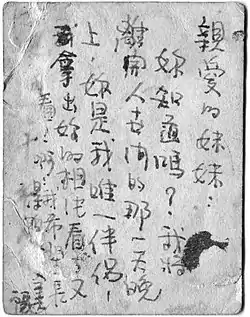 親愛的妹妹：
妳知道嗎？我將
離開人世間的那一天晚
上，妳是我唯一伴侶！
我拿出妳的相片看了又
看！